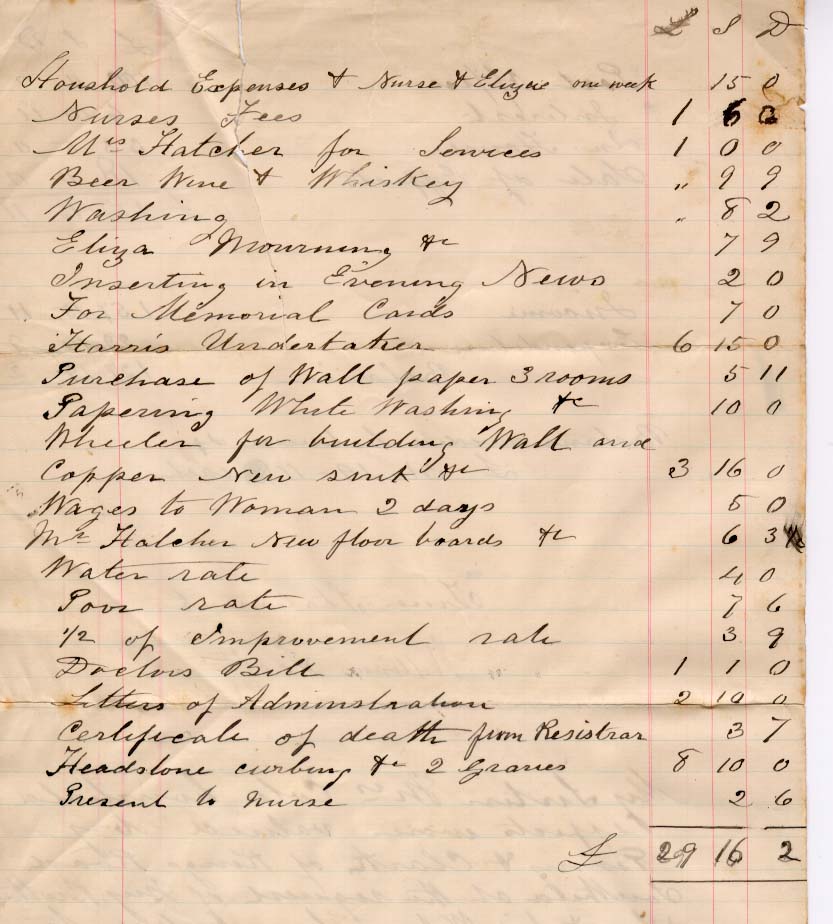 £ S D
Houshold Expenses & Nurse & Elizie one week 15 0
Nurses Fees 1 6 0
Mrs Hatcher for Services 1 0 0
Beer Wine & Whiskey " 9 9
Washing " 8 2
Eliza Mourning &c 7 9
Inserting in Evening News 2 0
For Memorial Cards 7 0
Harris Undertaker 6 15 0
Purchase of Wall paper 3 rooms 5 11
Papering White Washing &c 10 0
Wheeler for building Wall and
Copper New sink &c 3 16 0
Wages to Woman 2 days 5 0
Mr Hatcher New floor boards &c 6 3
Water rate 4 0
Poor rate 7 6
1/2 of Improvement rate 3 9
Doctors Bill 1 1 0
Letters of Adminstration 2 10 0
Certificate of death from Resistrar 3 7
Headstone curbing &c 2 Graves 8 10 0
Present to Nurse 2 6
£ 29 16 2